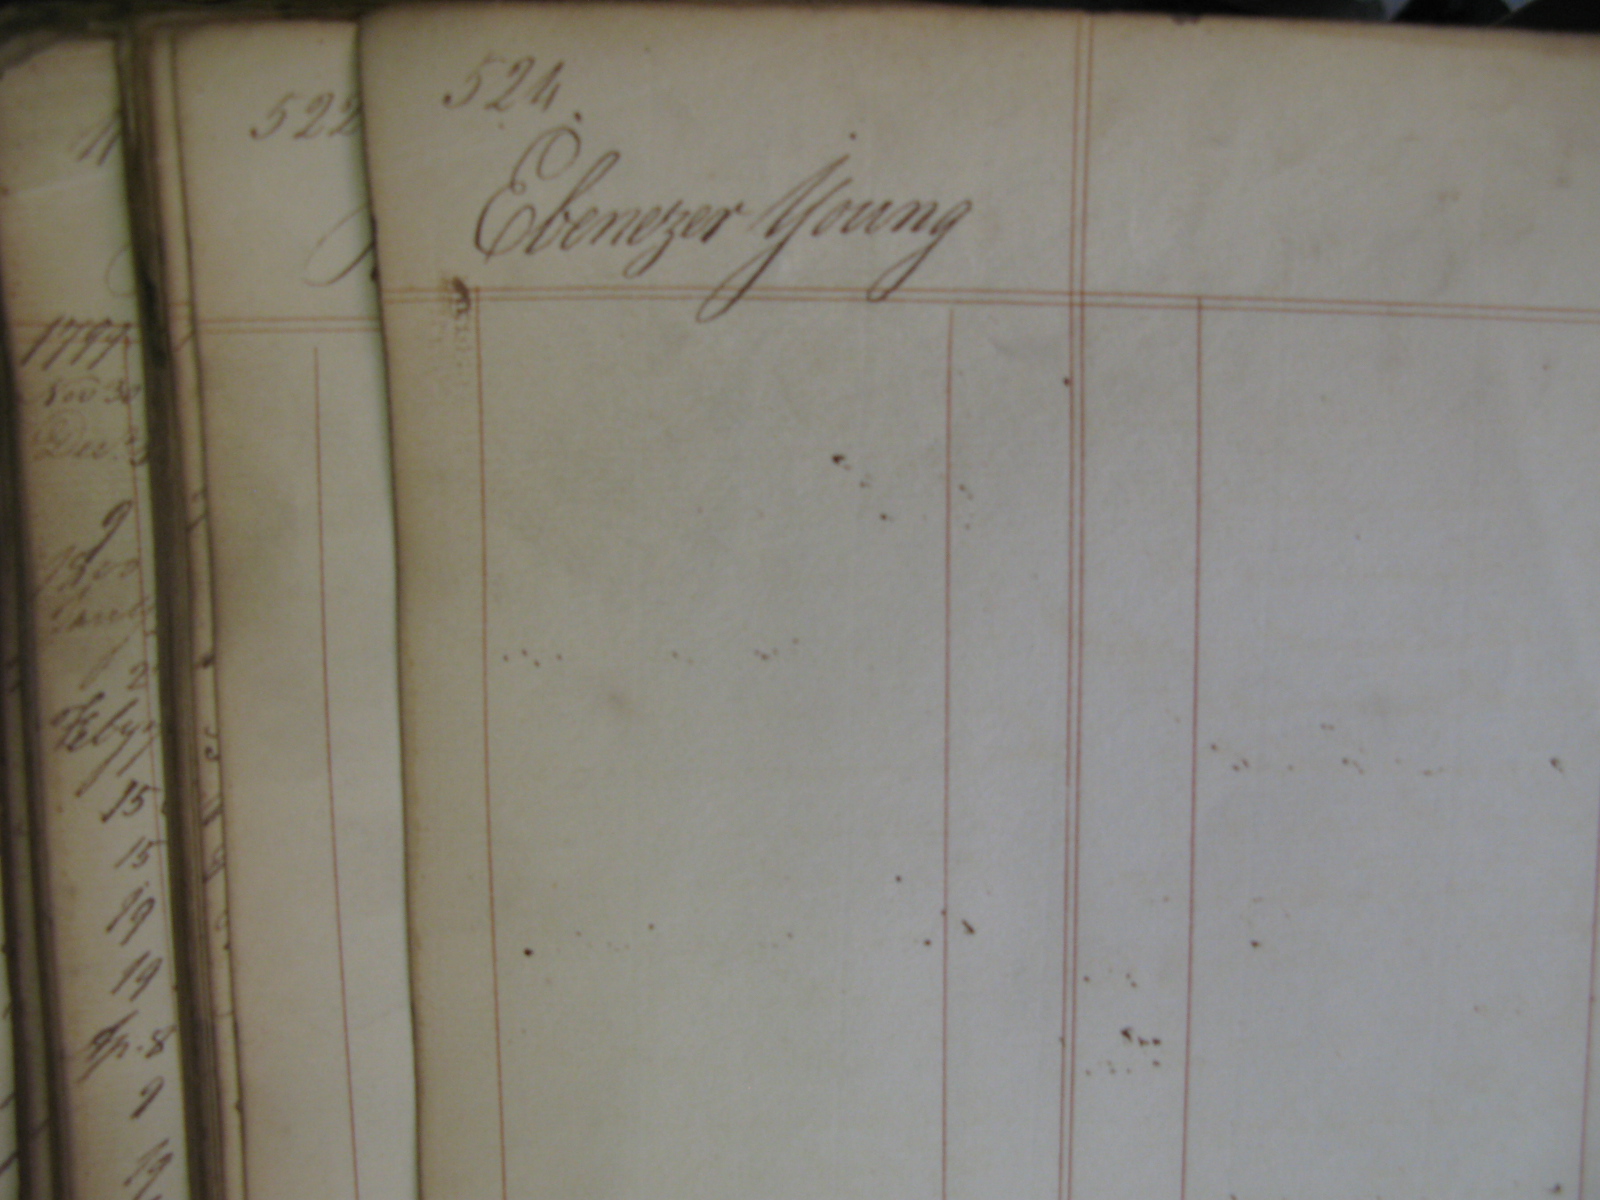 524.
Ebenezer Young
522
1799
Nov 30
Dec. 3
9
1800
2
Feby
15
15
19
19
Ap. 8
9
19